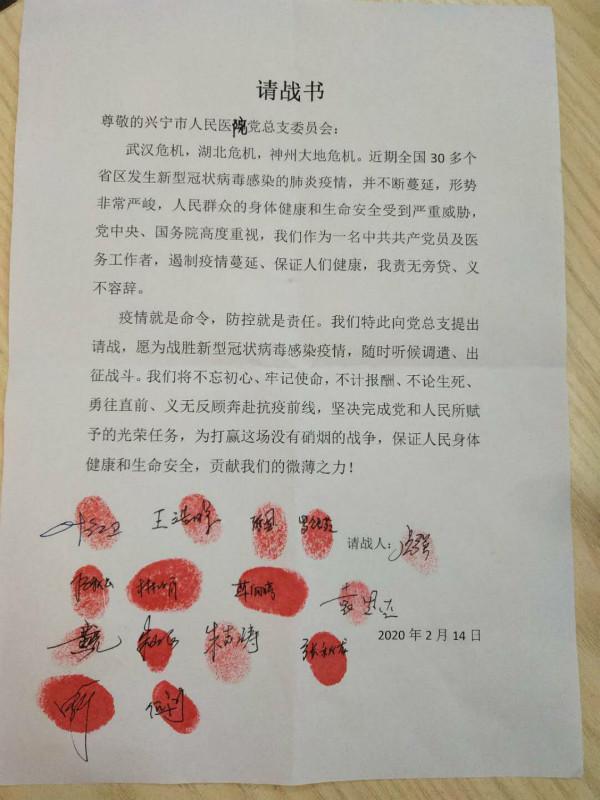 请战书
尊敬的兴宁市人民医院党总支委员会：
武汉危机，湖北危机，神州大地危机。近期全国 30 多个
省区发生新型冠状病毒感染的肺炎疫情，并不断蔓延，形势
非常严峻，人民群众的身体健康和生命安全受到严重威胁，
党中央、国务院高度重视，我们作为一名中共共产党员及医
务工作者，遏制疫情蔓延、保证人们健康，我责无旁贷、义
不容辞。
疫情就是命令，防控就是责任。我们特此向党总支提出
请战，愿为战胜新型冠状病毒感染疫情，随时听候调遣、出
征战斗。我们将不忘初心、牢记使命，不计报酬、不论生死、
勇往直前、义无反顾奔赴抗疫前线，坚决完成党和人民所赋
予的光荣任务，为打赢这场没有硝烟的战争，保证人民身体
健康和生命安全，贡献我们的微薄之力！
请战人：
2020 年 2 月 14 日